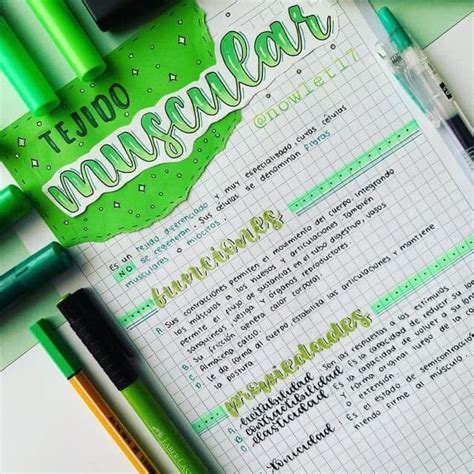 TEJIDO
muscular
@nowlet17
Es un tejido diferenciado y muy especializado, cuyas células
NO se regeneran. Sus células se denominan fibras
musculares o miocitos.
funciones
A. Sus contracciones permiten el movimiento del cuerpo, integrando
los músculos a los huesos y articulaciones. También
permite el flujo de sustancias en el tubo digestivo, vasos
sanguíneos, vejiga y órganos reproductores.
B. Su fricción, genera calor corporal
C. Almacena calcio.
D. Le da forma al cuerpo, estabiliza las articulaciones y mantiene
la postura.
propiedades
A. Excitabilidad Son las respuestas a los estímulos
B. contractibilidad Es la capacidad de reducir su
C. elasticidad Es la capacidad de volver a su
y forma original luego de la
Tonicidad Es el estado de semicontracción
o extensión de
miento firme a
músculo